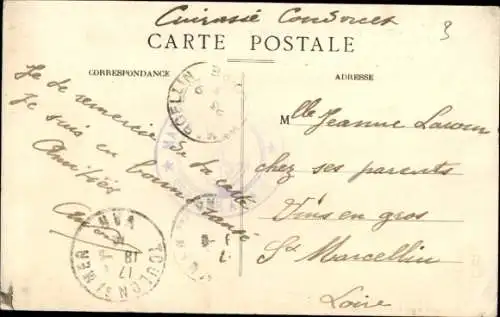 Cuirassé Condorcet
3
CARTE POSTALE
CORRESPONDANCE
ADRESSE
Je te remercie de ta carte
Je suis en bonne santé
Amitiés
Mlle Jeanne
chez ses parents
Vins en gros
St Marcellin
Loire
MARCELLIN
TOULON